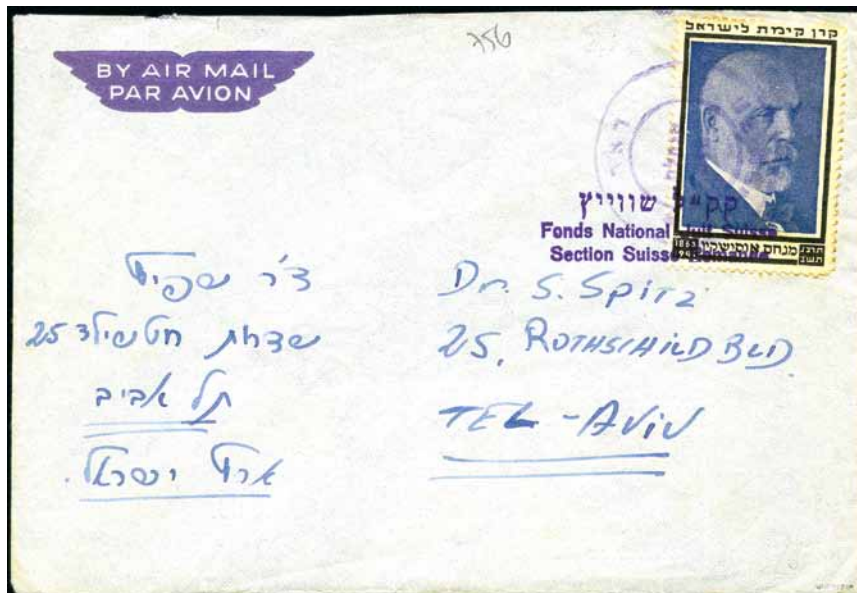 BY AIR MAIL
PAR AVION
756
קרן קימת לישראל
מנחם אוסישקין
קק"ל שווייץ
Fonds National Juif Suisse
Section Suisse Romande
ד"ר שפיץ
שדרות רוטשילד 25
תל אביב
ארץ ישראל.
Dr. S. Spitz
25, ROTHSCHILD BLD.
TEL-AVIV